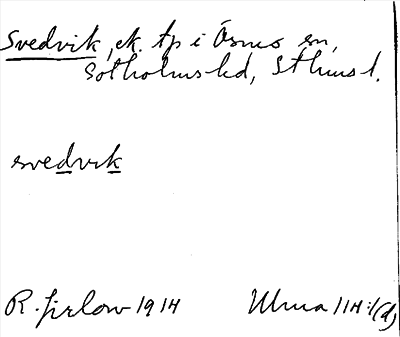 Svedvik, ek. tp i Ösmo sn,
Sotholms hd, Sthms l.
svedvik
R. Jirlow 1914 Ulma 114:1(d)